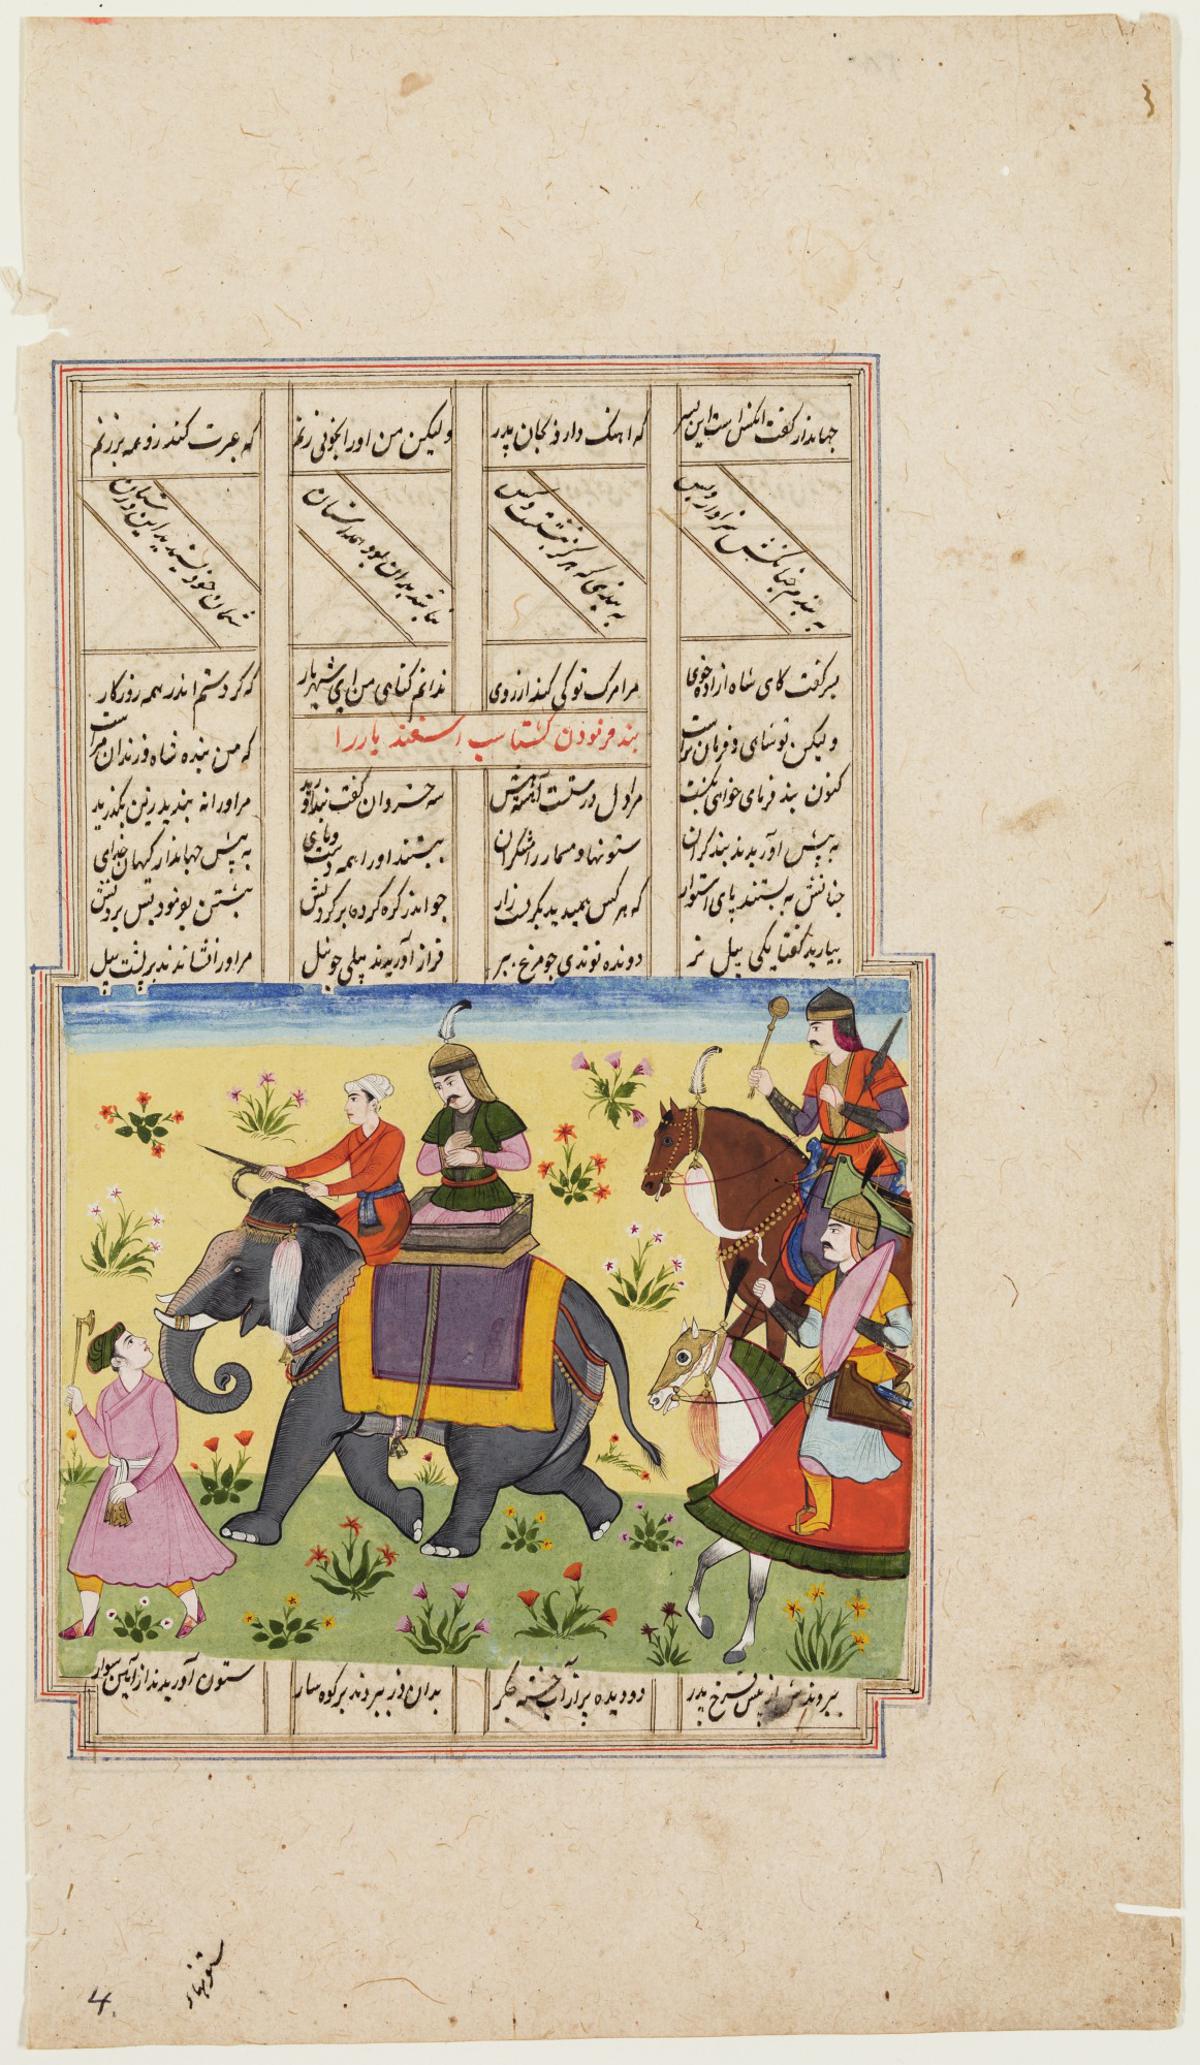 جهاندار گفت انکس است این پسر که اهنک دارد بجان پدر ولیکن من او را بخونی زنم که عبرت کند زو همه برزنم
به بندم چنانکش سزاوار و بس به بندی که هرکز نبستست کس
پسر گفت کای شاه ازاده خوی مرا مرک تو کی کند ارزوی ندانم کناهی من ای شهریار که کردستم اندر همه روزکار
بند فرمودن کشتاسب اسفندیار را
ولیکن تو شاهی و فرمان تراست که من بنده شاه و فرزندان مراست
کنون بند فرمای خواهی بکشت مرا دل درستست آهسته هش سه خسروان گفت بند آورید مر او را به بندید زین بگذرید
به پیش آوریدند بند گران ستونها و مسمار ببستند او را همه دست و پای به پیش جهاندار کیهان خدای
چنانش به بستند پای استوار که هرکس همی دید بکریست زار چو اندر کره کرده بر کردنش بستن بفرمود بس بردنش
بیارید گفتا یکی پیل نر دونده نوندی چو مرغ بپر فراز آوریدند پیلی چو نیل مر او را نشاندند بر پشت پیل
ببردندش از پیش فرخ پدر دو دیده پر از آب خسته جگر بدان دز ببردند بر کوهسار ستون آوریدند از آهن
ستونها
4.